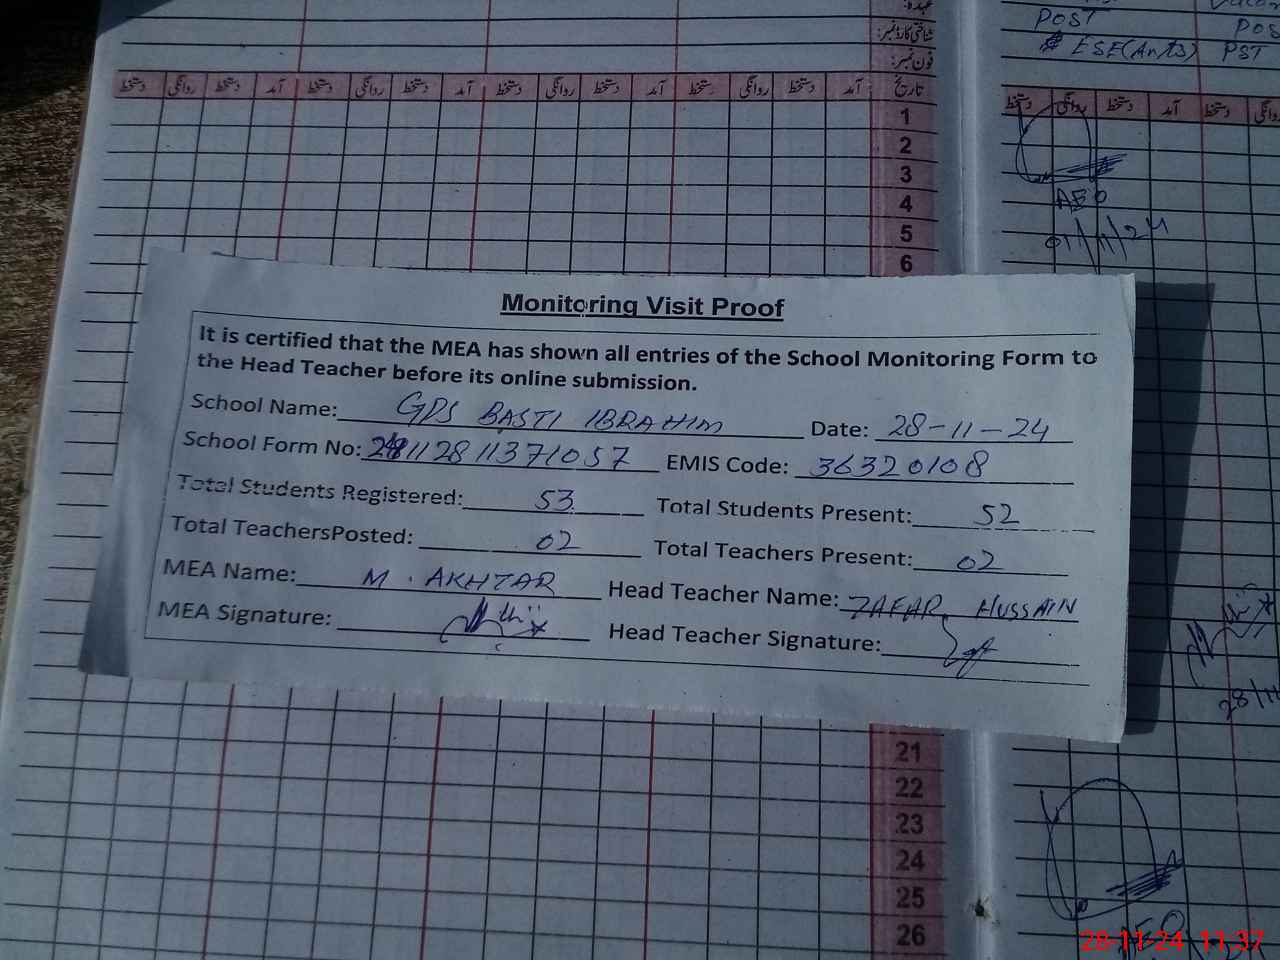 عہدہ:
شناختی کارڈ نمبر:
فون نمبر:
دستخط روانگی دستخط آمد دستخط روانگی دستخط آمد دستخط روانگی دستخط آمد دستخط روانگی دستخط آمد تاریخ
1
2
3
4
5
6
POST POS
ESE(Arts) PST
دستخط روانگی دستخط آمد دستخط روانگی
AEO
01/11/24
Monitoring Visit Proof
It is certified that the MEA has shown all entries of the School Monitoring Form to
the Head Teacher before its online submission.
School Name: GPS BASTI IBRAHIM Date: 28-11-24
School Form No: 24112811371057 EMIS Code: 36320108
Total Students Registered: 53 Total Students Present: 52
Total TeachersPosted: 02 Total Teachers Present: 02
MEA Name: M. AKHTAR Head Teacher Name: ZAFAR HUSSAIN
MEA Signature: Head Teacher Signature:
28/11
21
22
23
24
25
26
28-11-24 11:37